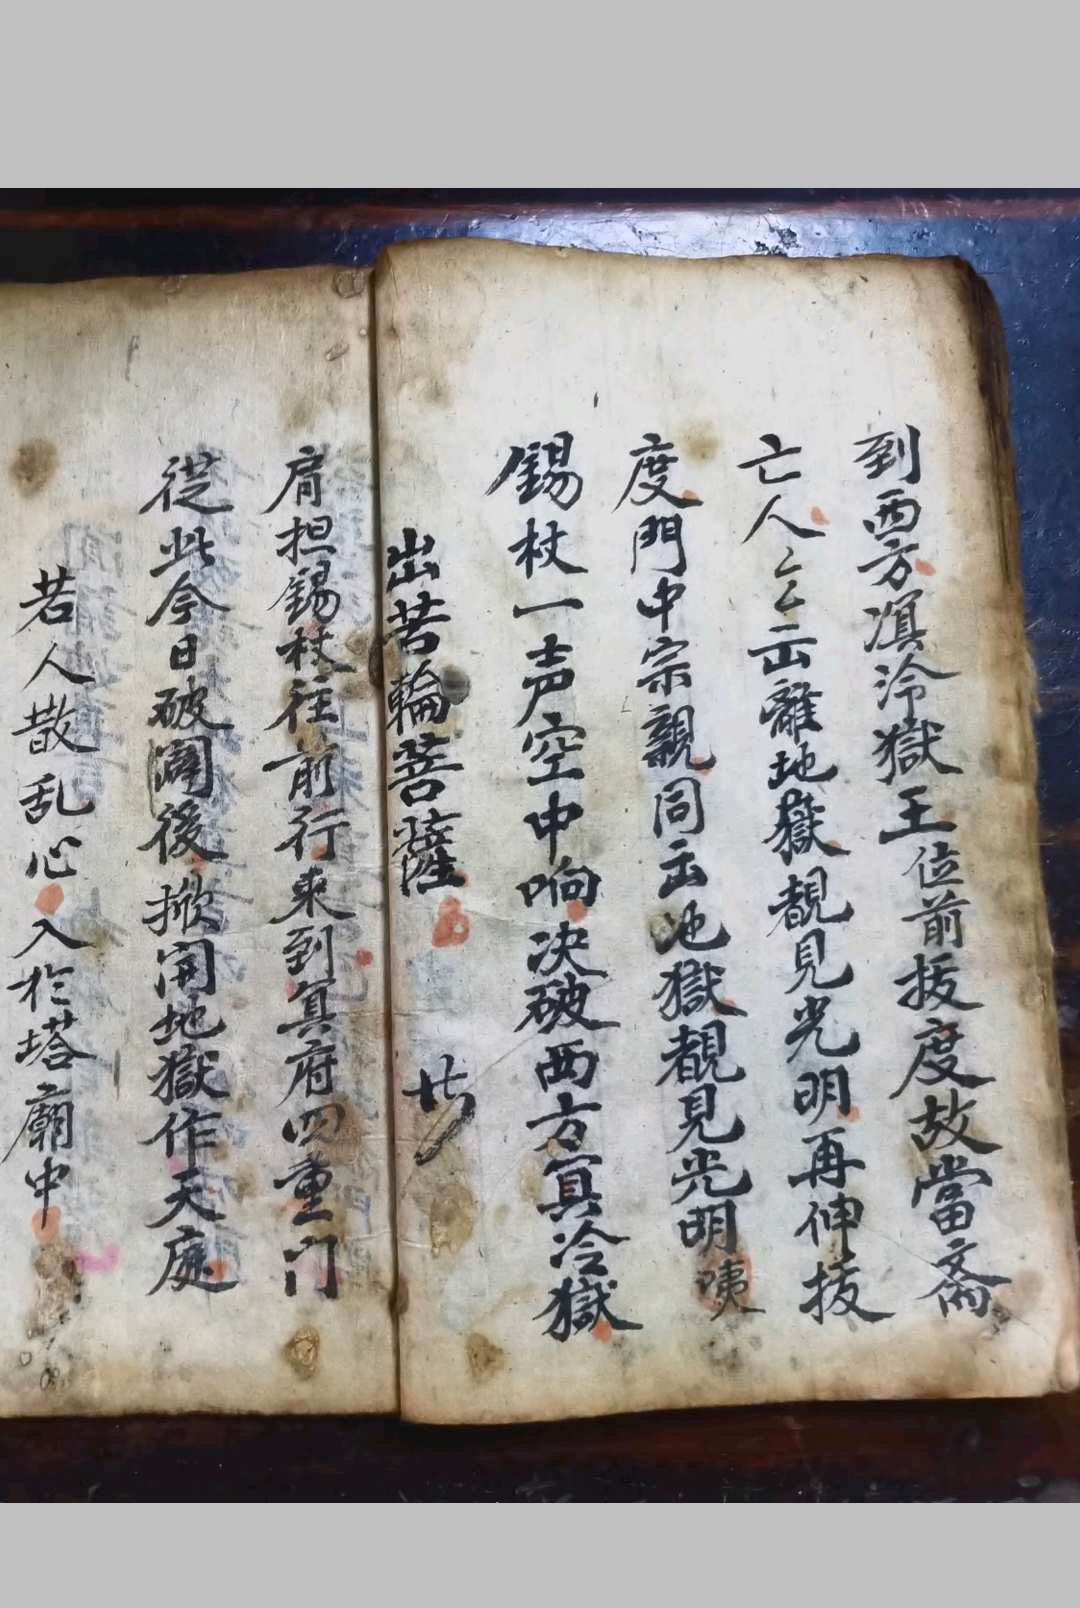 到西方滇泠獄王位前拔度故當斎
亡人厶厶出離地嶽覩見光明再伸拔
度門中宗親同出地獄覩見光明咦
錫杖一声空中响决破西方冥冷獄
出苦輪菩薩
肩担錫杖往前行来到冥府四重门
從此今日破𨵿後掀開地獄作天庭
若人散乱心入於塔廟中